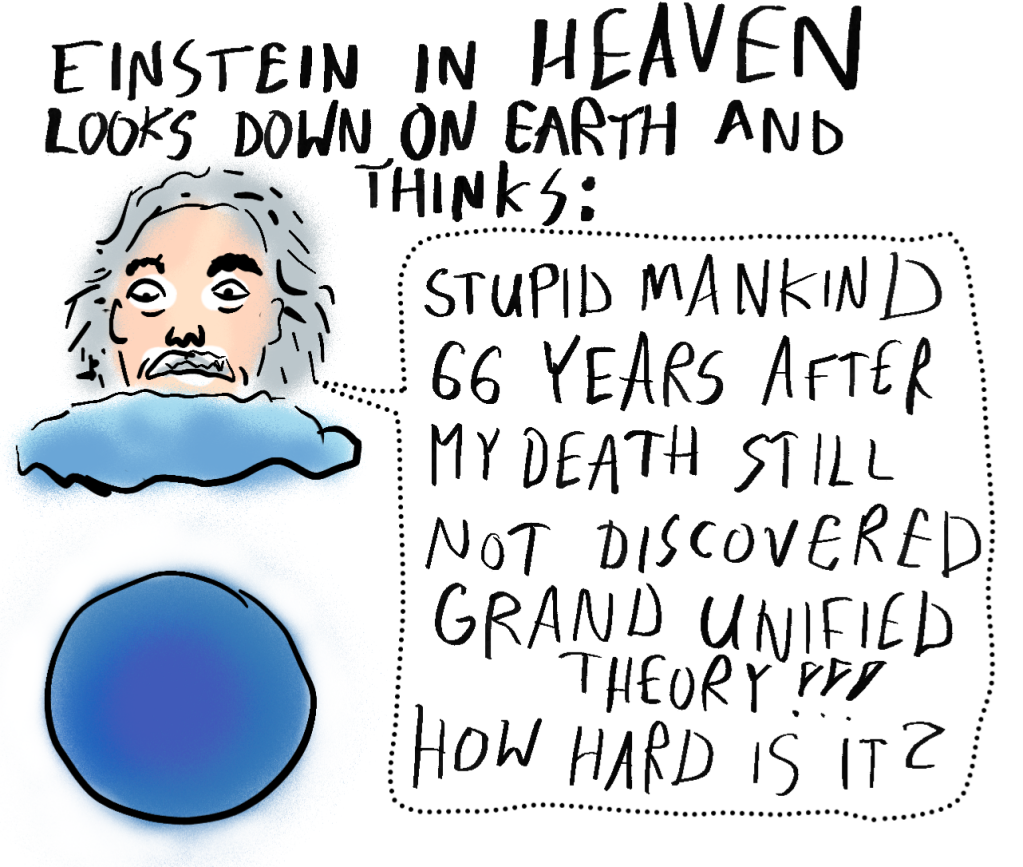 EINSTEIN IN HEAVEN
LOOKS DOWN ON EARTH AND
THINKS:
STUPID MANKIND
66 YEARS AFTER
MY DEATH STILL
NOT DISCOVERED
GRAND UNIFIED
THEORY!!!
HOW HARD IS IT?